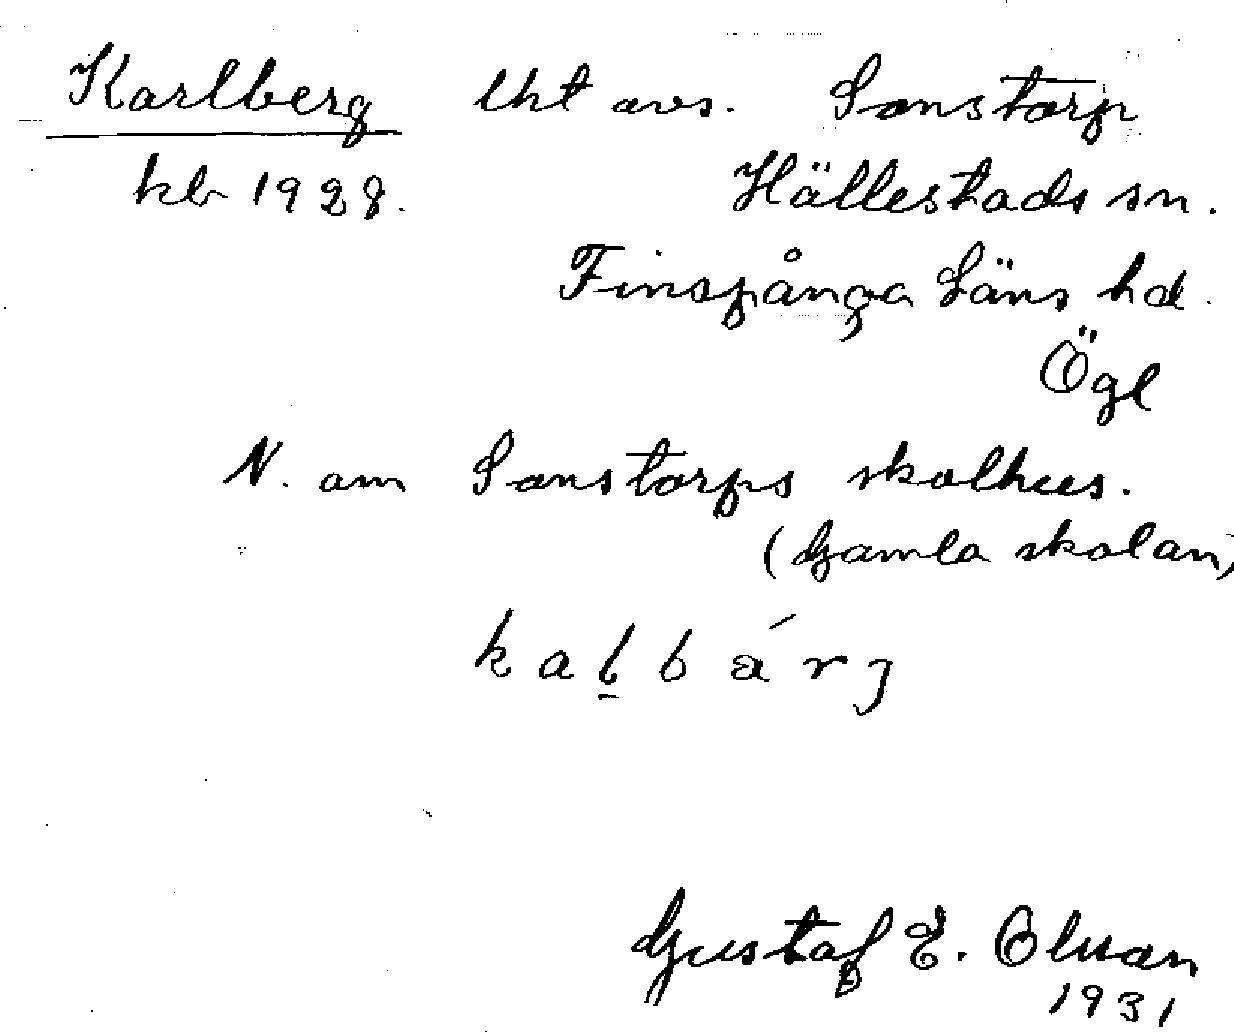 Karlberg lht avs. Sonstorp
kb 1928. Hällestads sn.
Finspånga Läns hd.
Ögl
N. om Sonstorps skolhus.
(Gamla skolan)
kaḷbárj
Gustaf E. Olsson
1931